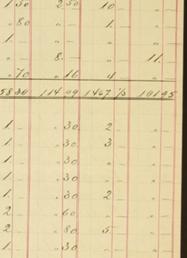 1 50 2 50 10 –
" 80 – 1 –
1 – – –
– " 8 – – 11 –
" 70 " 16 4 –
58 30 114 09 1467 15 101 95
1 – " 30 2 –
1 – " 30 3 –
1 – " 30 –
1 – " 30 –
1 – " 30 2 –
2 – " 60 –
2 – " 80 5 –
1 – " 30 –